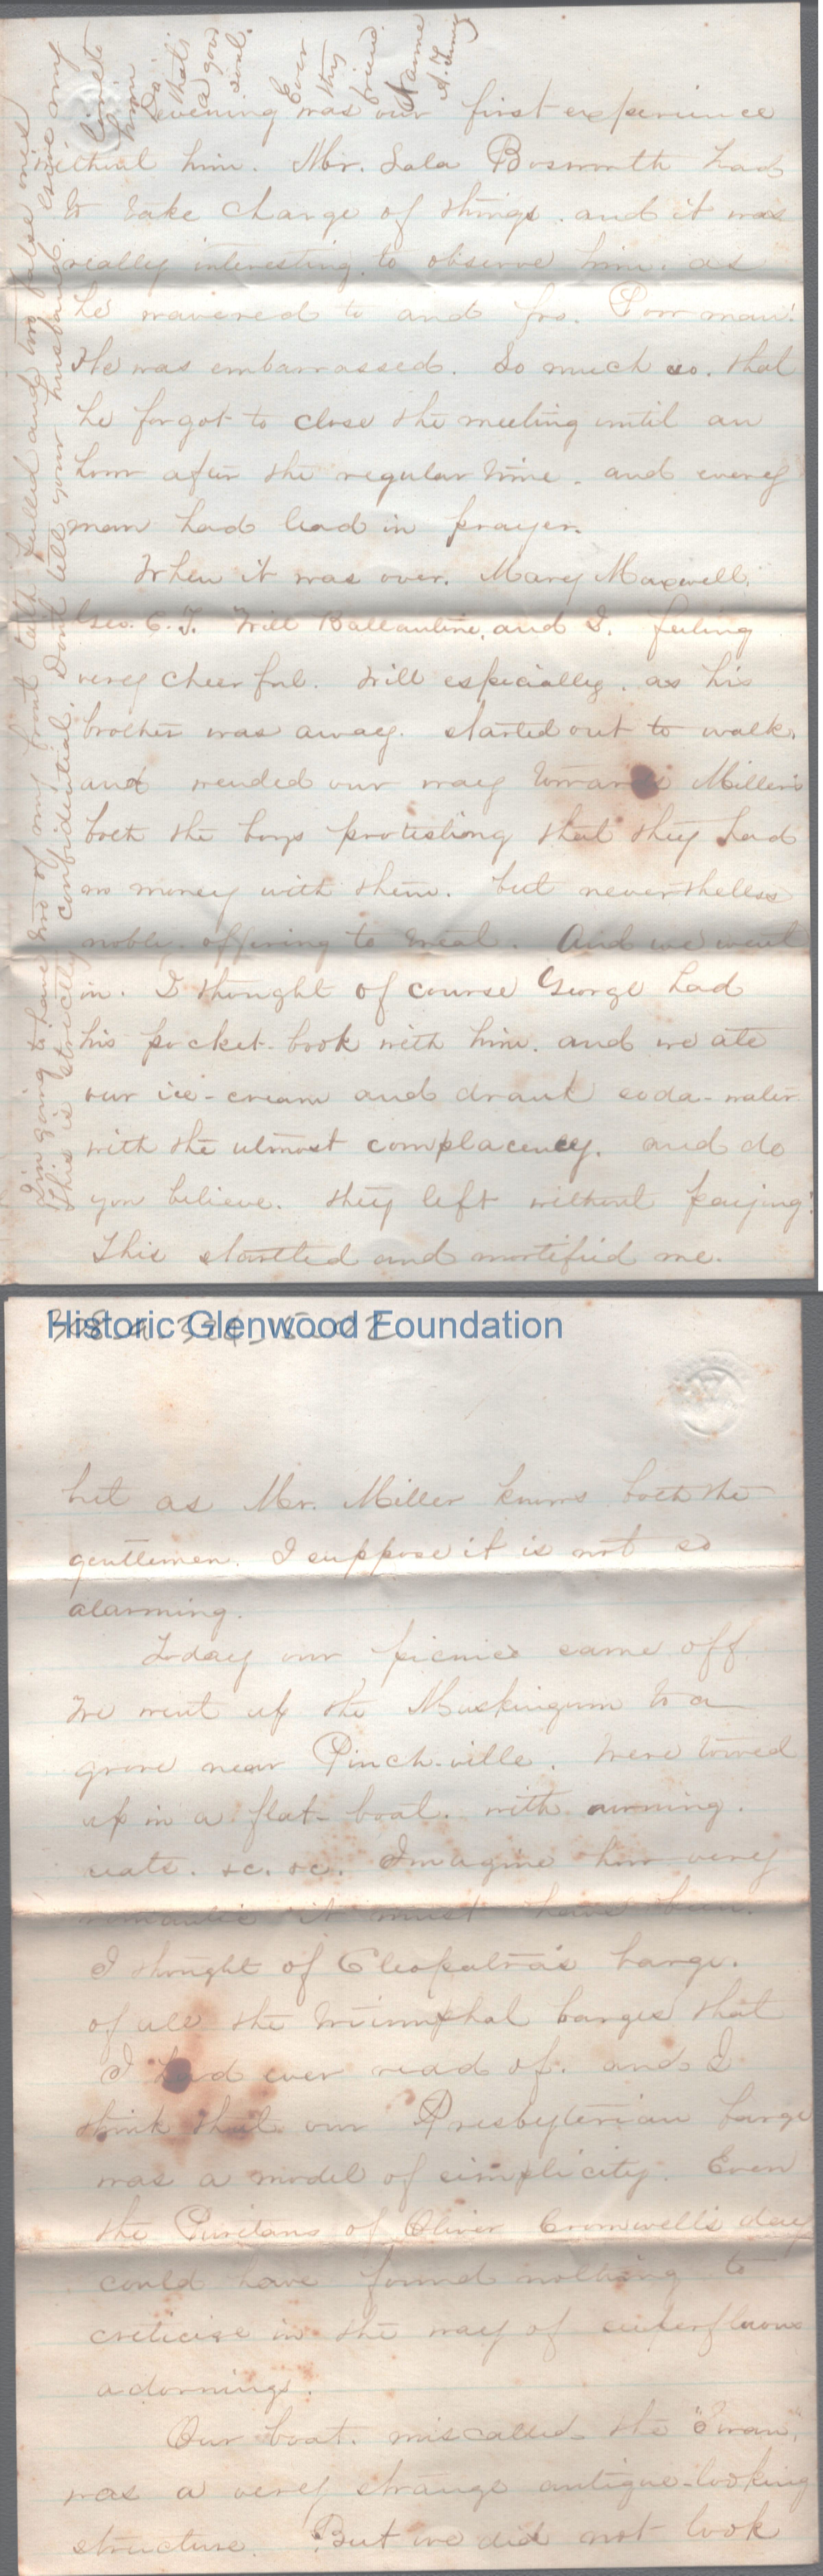 evening was our first experience
without him. Mr. Sala Bosworth had
to take charge of things. and it was
really interesting to observe him. as
he wavered to and fro. Poor man!
He was embarrassed. So much so. that
he forgot to close the meeting until an
hour after the regular time. and every
man had lead in prayer.
When it was over. Mary Maxwell.
Geo. C. T. Will Ballantine, and I. feeling
very cheerful. Will especially. as his
brother was away. started out to walk.
and wended our way towards Miller's
both the boys protesting that they had
no money with them. but nevertheless
nobly. offering to treat. And we went
in. I thought of course George had
his pocket-book with him. and we ate
our ice-cream and drank soda-water
with the utmost complacency. and do
you believe. they left without paying!
This startled and mortified me.
I'm going to have two of my front teeth pulled and two false ones
This is strictly confidential. Don't tell your husband. Give my
love to
him
Do
that's
a good
soul.
Ever
thy
friend
Nannie
Historic Glenwood Foundation
but as Mr. Miller knows both the
gentlemen. I suppose it is not so
alarming.
Today our picnic came off.
We went up the Muskingum to a
grove near Pinch-ville. Were towed
up in a flat-boat. with awning.
seats. &c. &c. Imagine how very
romantic it must have been.
I thought of Cleopatra's barge.
of all the triumphal barges that
I had ever read of. and I
think that our Presbyterian barge
was a model of simplicity. Even
the Puritans of Oliver Cromwell's day
could have found nothing to
criticise in the way of superfluous
adornings.
Our boat. miscalled the "Swan",
was a very strange antique-looking
structure. But we did not look